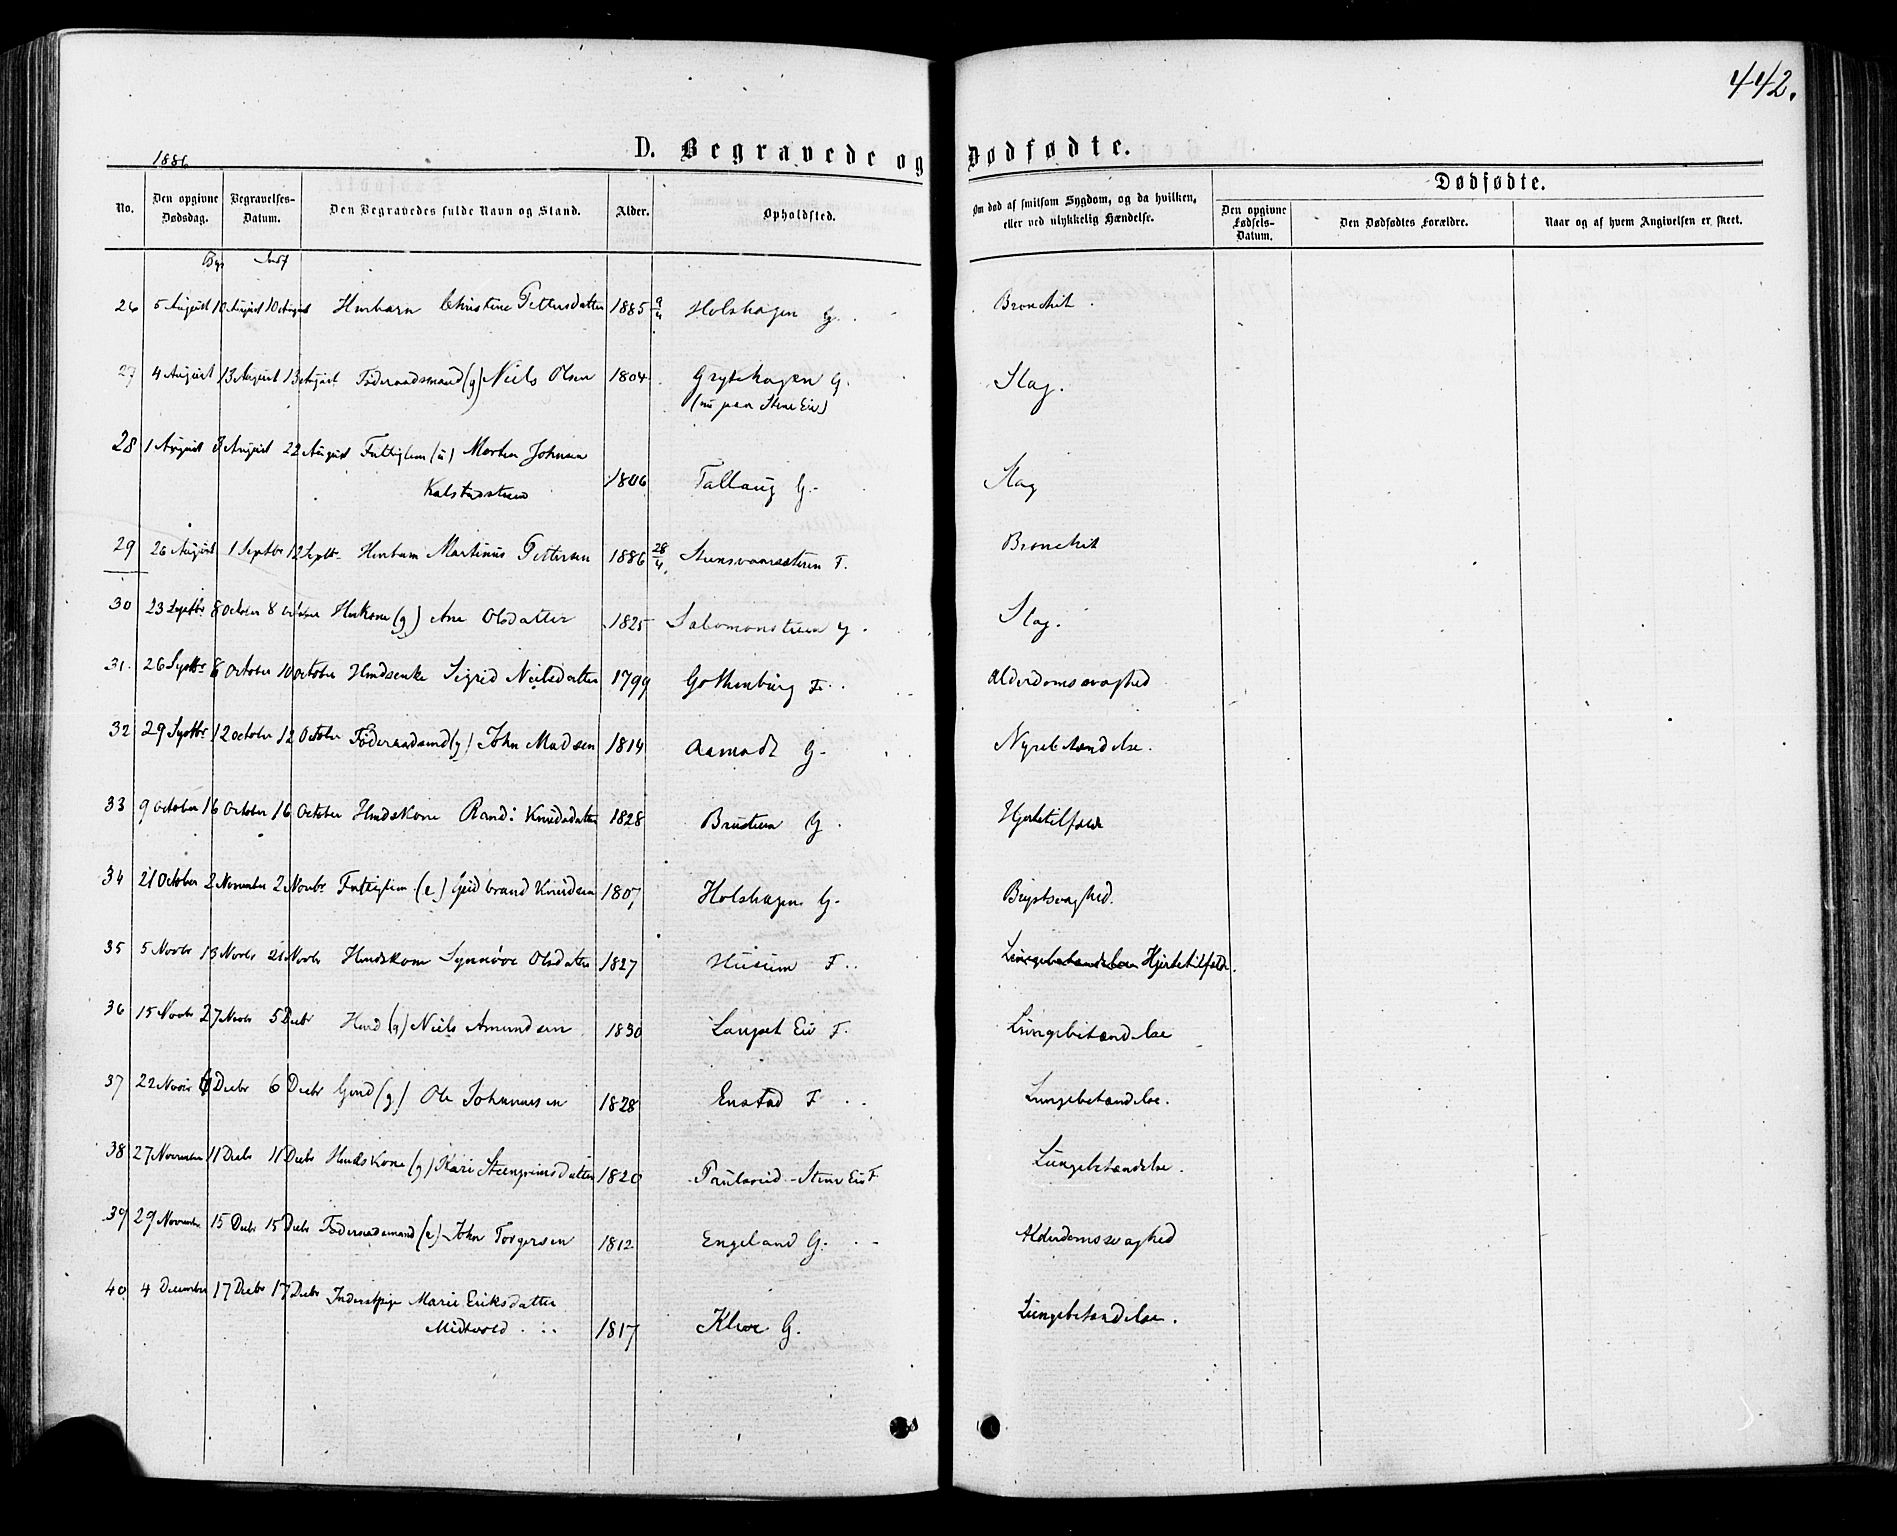 442.
1886
D. Begravede og Dødfødte.
No. Den opgivne Dødsdag. Begravelses-Datum. Den Begravedes fulde Navn og Stand. Alder. Opholdsted. Om død af smitsom Sygdom, og da hvilken, eller ved ulykkelig Hændelse. Dødfødte.
Den opgivne Fødsels-Datum. Den Dødfødtes Forældre. Naar og af hvem Angivelsen er skeet.
26 5 August 10 August 10 August Christine Pettersdatter 1885 9/4 Holshagen G. Bronchit.
27 4 August 13 August 13 August Føderaadsmand (g) Niels Olsen 1804. Grytehagen G. Slag.
(nu paa Stene Eie)
28 1 August 8 August 22 August Fattiglem (u) Morten Johnsen
1806 Tallaug G. Slag
29 26 August 1 Septbr 12 Septbr Martinus Pettersen 1886 28/4. F. Bronchit
30 23 Septbr 8 October 8 October Huskone (g) Ane Olsdatter 1825 Salomonsteen G. Slag.
31. 26 Septbr 8 October 10 October Husdsenke Sigrid Nielsdatter 1799 Gothenburg F. Alderdomssvaghed
32 29 Septbr 12 October 12 October Føderaadsmd (g) John Madsen 1814 Aamodt G. Nyrebetændelse.
33 9 October 16 October 16 October Husdskone Randi Knudsdatter 1828 Brusteen G. Hjertetilfælde
34 21 October 2 November 2 Novbr Fattiglem (e) Gudbrand Knudsen 1807, Holshagen G. Brystsvaghed.
35 5 Novbr 13 Novbr 21 Novbr Husdskone Synnøve Olsdatter 1827 Husum F. Hjertetilfælde.
36 15 Novbr 27 Novbr 5 Decbr Husd (g) Niels Amundsen 1830 Langset Eie F. Lungebetændelse
37 22 Novbr 6 Decbr 6 Decbr Gmd (g) Ole Johannesen 1828 Enstad F. Lungebetændelse.
38 27 November 11 Decbr 11 Decbr Husdskone (g) Kari Steengrimsdatter 1820 Stene Eie F Lungebetændelse.
39 29 November 15 Decbr 15 Decbr Føderaadsmand (e) John Torgersen 1812 Engeland G. Alderdomssvaghed
40 4 December 17 Decbr 17 Decbr Inderstpige Marie Eriksdatter
Midtvold 1817 Kleve G. Lungebetændelse.